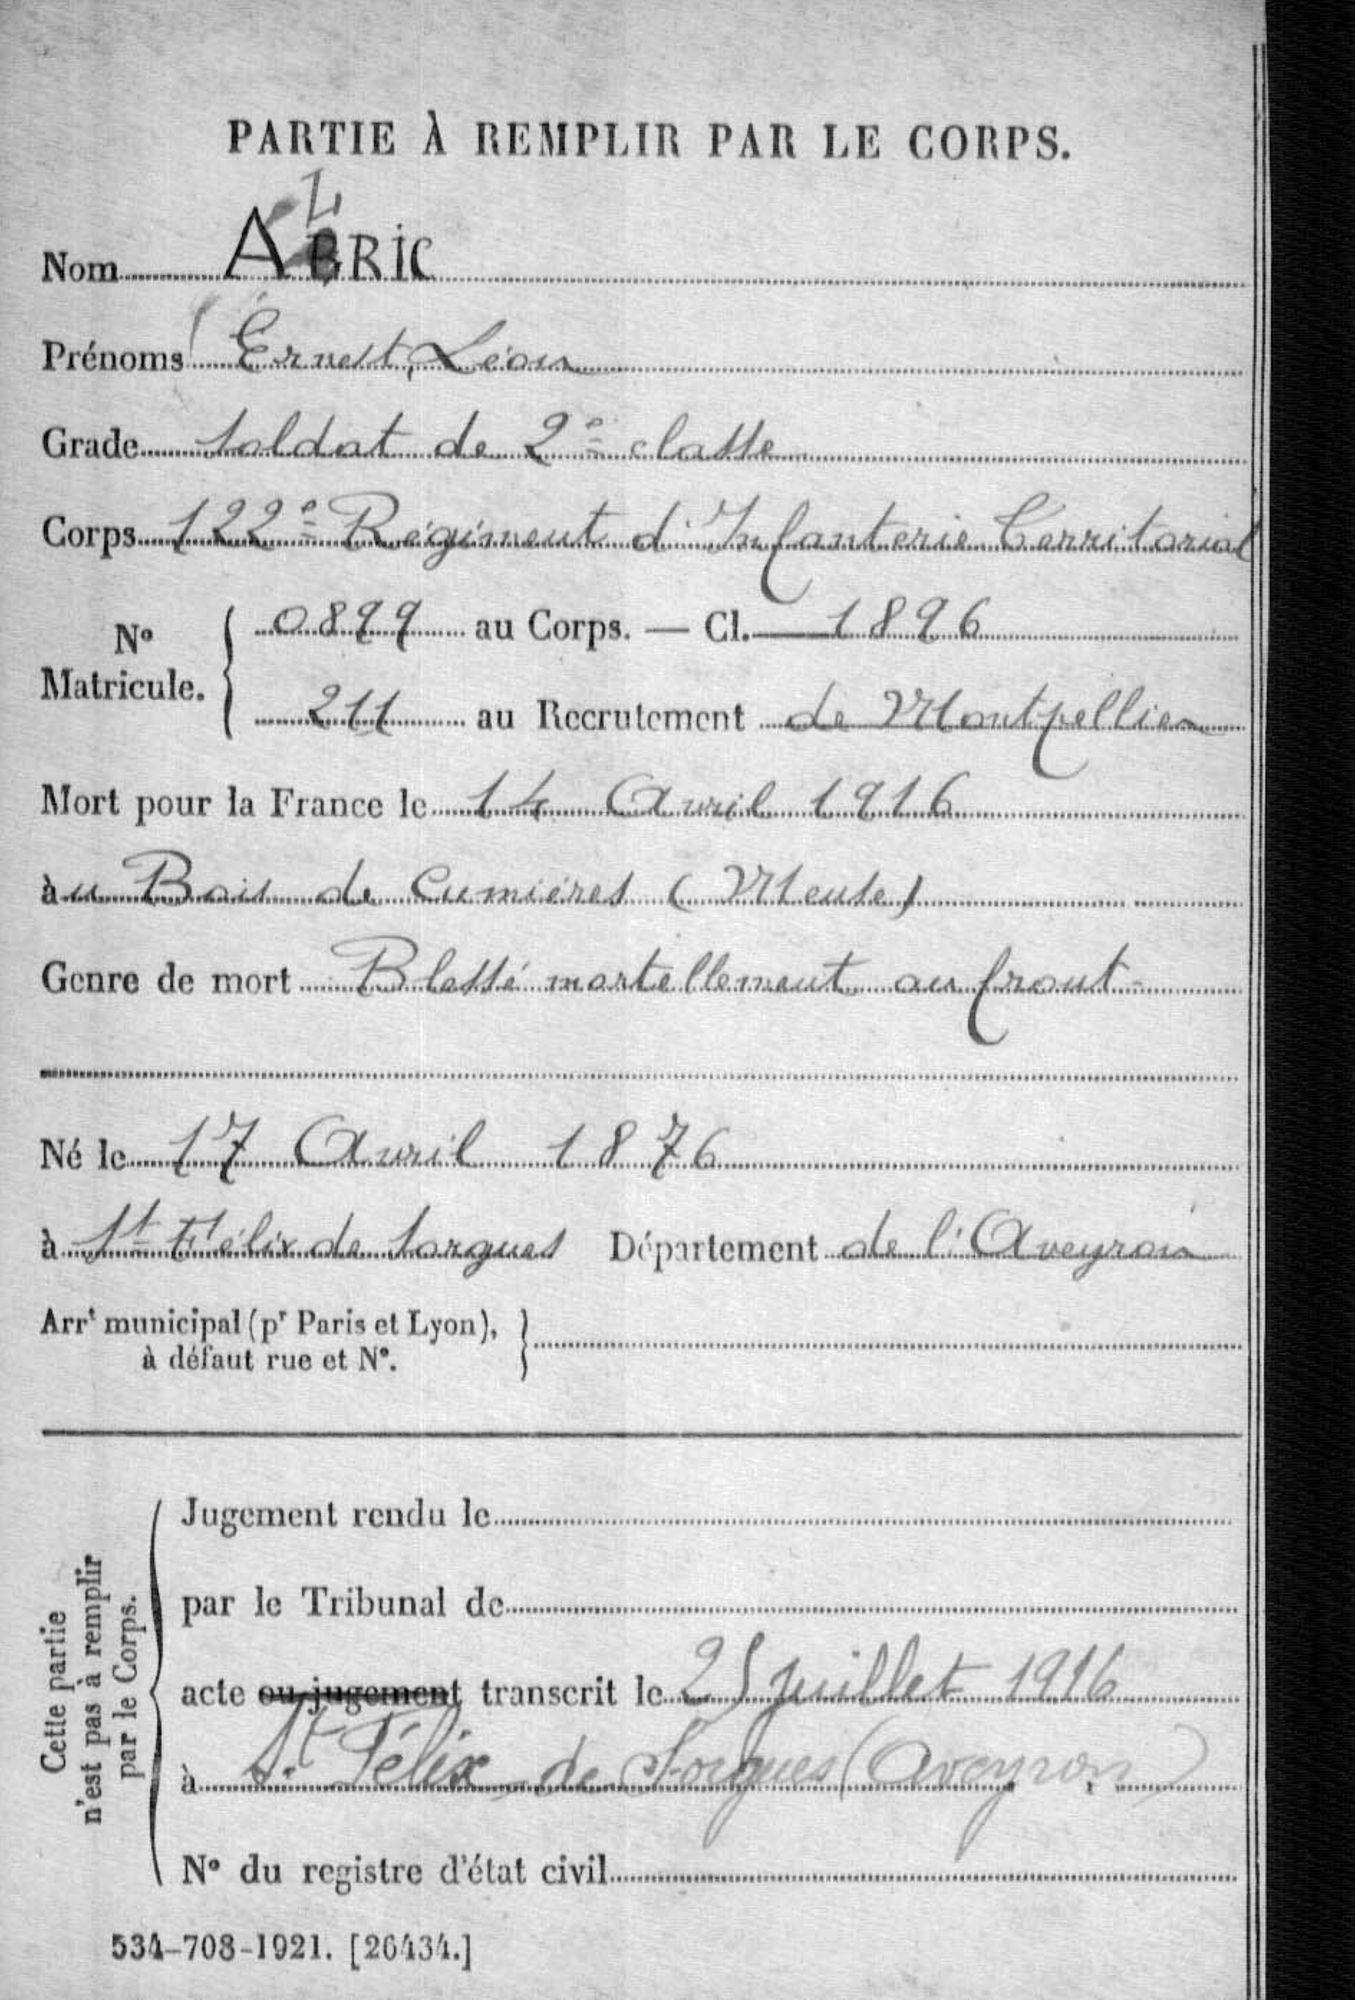 PARTIE À REMPLIR PAR LE CORPS.
Nom ABRIC
Prénoms Ernest, Léon
Grade Soldat de 2e classe
Corps 122e Régiment d'Infanterie Territorial
No Matricule. { 0899 au Corps. — Cl. 1896
211 au Recrutement de Montpellier
Mort pour la France le 14 Avril 1916
àu Bois de Cumières (Meuse)
Genre de mort Blessé mortellement au front
Né le 17 Avril 1876
à St Félix de Sorgues Département de l'Aveyron
Arrt municipal (pr Paris et Lyon), }
à défaut rue et No.
Cette partie
n'est pas à remplir
par le Corps.
Jugement rendu le
par le Tribunal de
acte ou jugement transcrit le 25 juillet 1916
à St. Félix de Sorgues (Aveyron)
No du registre d'état civil
534-708-1921. [26434.]